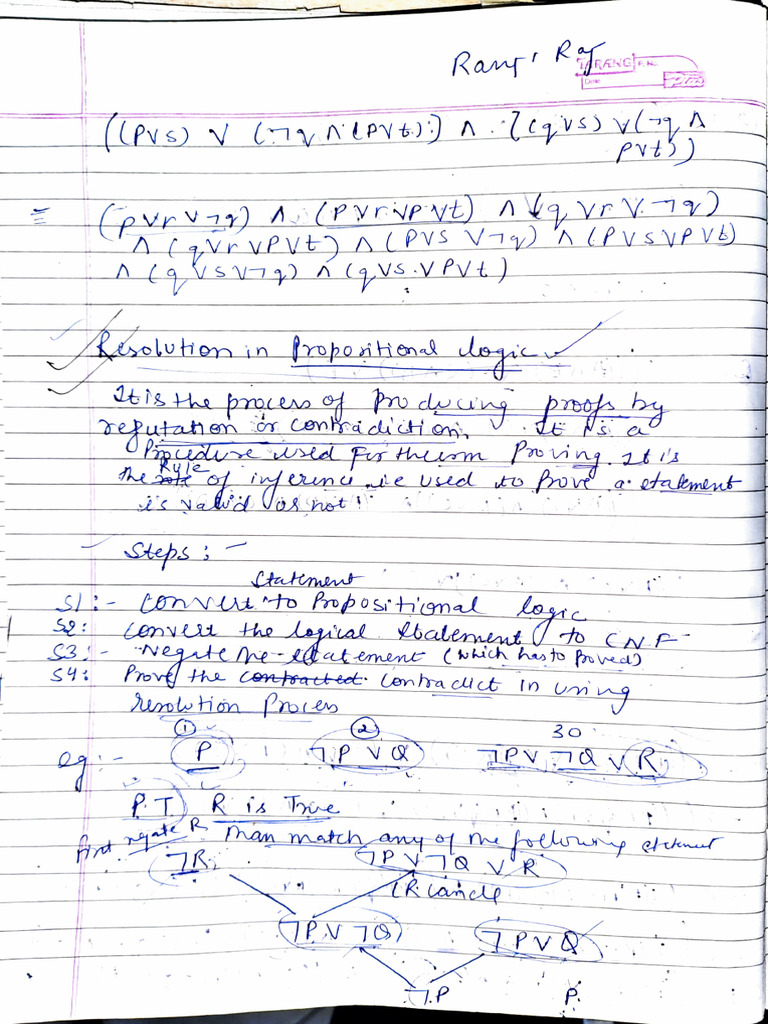 Raj
TARANG P.N.
Date
((p∨s) ∨ (¬q ∧ (p∨t))) ∧ {(q∨s) ∨ (¬q ∧
p∨t))
≡ (p∨r∨¬q) ∧ (p∨r∨p∨t) ∧ (q∨r∨¬q)
∧ (q∨r∨p∨t) ∧ (p∨s∨¬q) ∧ (p∨s∨p∨t)
∧ (q∨s∨¬q) ∧ (q∨s∨p∨t)
Resolution in Propositional Logic
It is the process of producing proofs by
refutation or contradiction. It is a
Procedure used for therm Proving. It is
Rule
the of inference i.e used to prove a statement
is valid or not
Steps :-
Statement
S1 :- Convert to Propositional logic
S2: Convert the logical statement to CNF
S3 :- Negate the statement (which has to proved)
S4: Prove the contracted contradict in using
resolution Process
① ② 30
eg :- P ¬P ∨ Q ¬P ∨ ¬Q ∨ R
P.T R is True
First negate R than match any of the following statement
¬R ¬P ∨ ¬Q ∨ R
(R cancle
¬P ∨ ¬Q ¬P ∨ Q
¬P P